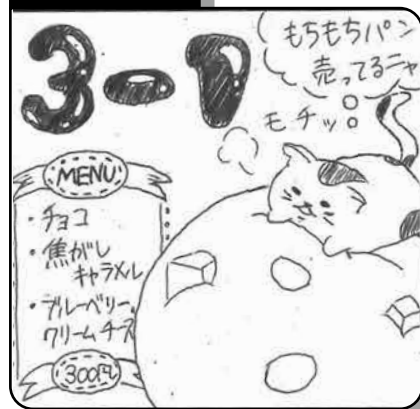 3-1
もちもちパン
売ってるニャ
モチッ
MENU
・チョコ
・焦がし
キャラメル
・ブルーベリー
クリームチーズ
300円